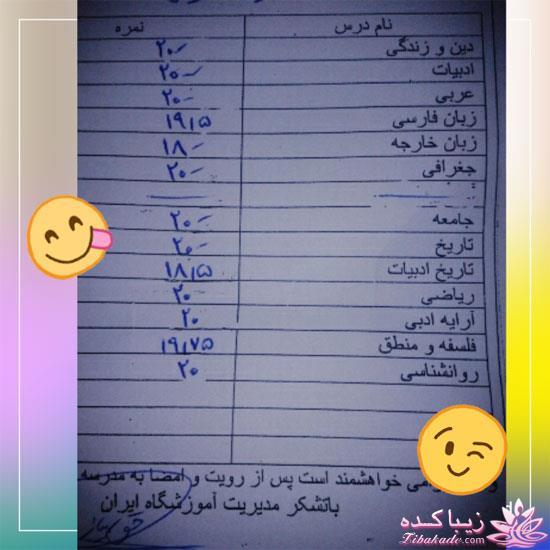 نام درس نمره
دین و زندگی ۲۰-
ادبیات ۲۰-
عربی ۲۰-
زبان فارسی ۱۹/۵
زبان خارجه ۱۸-
جغرافی ۲۰-
جامعه ۲۰-
تاریخ ۲۰-
تاریخ ادبیات ۱۸/۵
ریاضی ۲۰
آرایه ادبی ۲۰
فلسفه و منطق ۱۹/۷۵
روانشناسی ۲۰
می خواهشمند است پس از رویت و امضا به مدرسه
باتشکر مدیریت آموزشگاه ایران
زیباکده
Zibakade.com